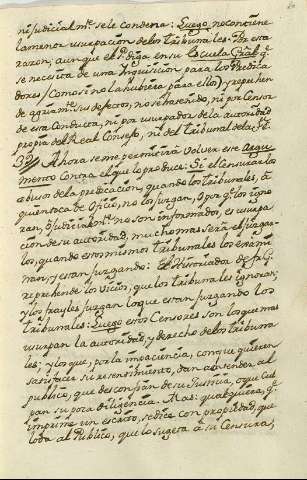 ni judicialmte. se le condena: Luego no contiene
la menor usurpacion de los tribunales. Por esta
razon; aunque el P. diga en su Escuela Gral. qe.
se necesita de una Inquisicion para los Predica
dores/ Como si no la hubiera para ellos/ y reprehen
de agriamte. sus defectos, no se ha tenido, ni por Censor
de esta Conducta, ni por usurpador de la autoridad
propia del Real Consejo, ni del Tribunal de la Fé.
39// Ahora se me permitirá volver este Argu
mento contra el que lo produce: Si el censurar los
abusos de la predicacion, quando los tribunales, á
quien toca de Oficio, no los juzgan, ó porque los igno
ran, ó judicialmte. no son informados, es usurpa
cion de su autoridad, mucho mas será el juzgar
los, quando estos mismos tribunales los exami
nan, y estan juzgando: El Historiador de Fr. G.
reprehende los vicios, que los tribunales ignoran;
y los frayles juzgan lo que estan juzgando los
tribunales: Luego estos Censores son los que mas
usurpan la autoridad, y derecho de los tribuna
les; y los que, por la impaciencia, con que quieren
satisfacer su resentimiento, dan a entender al
publico, que desconfian de su Justicia, o que cul
pan su poca diligencia. Mas: qualquiera, qe.
imprime un escrito, se dice con propiedad, que
lo da al Publico, que lo sugeta á su Censura,